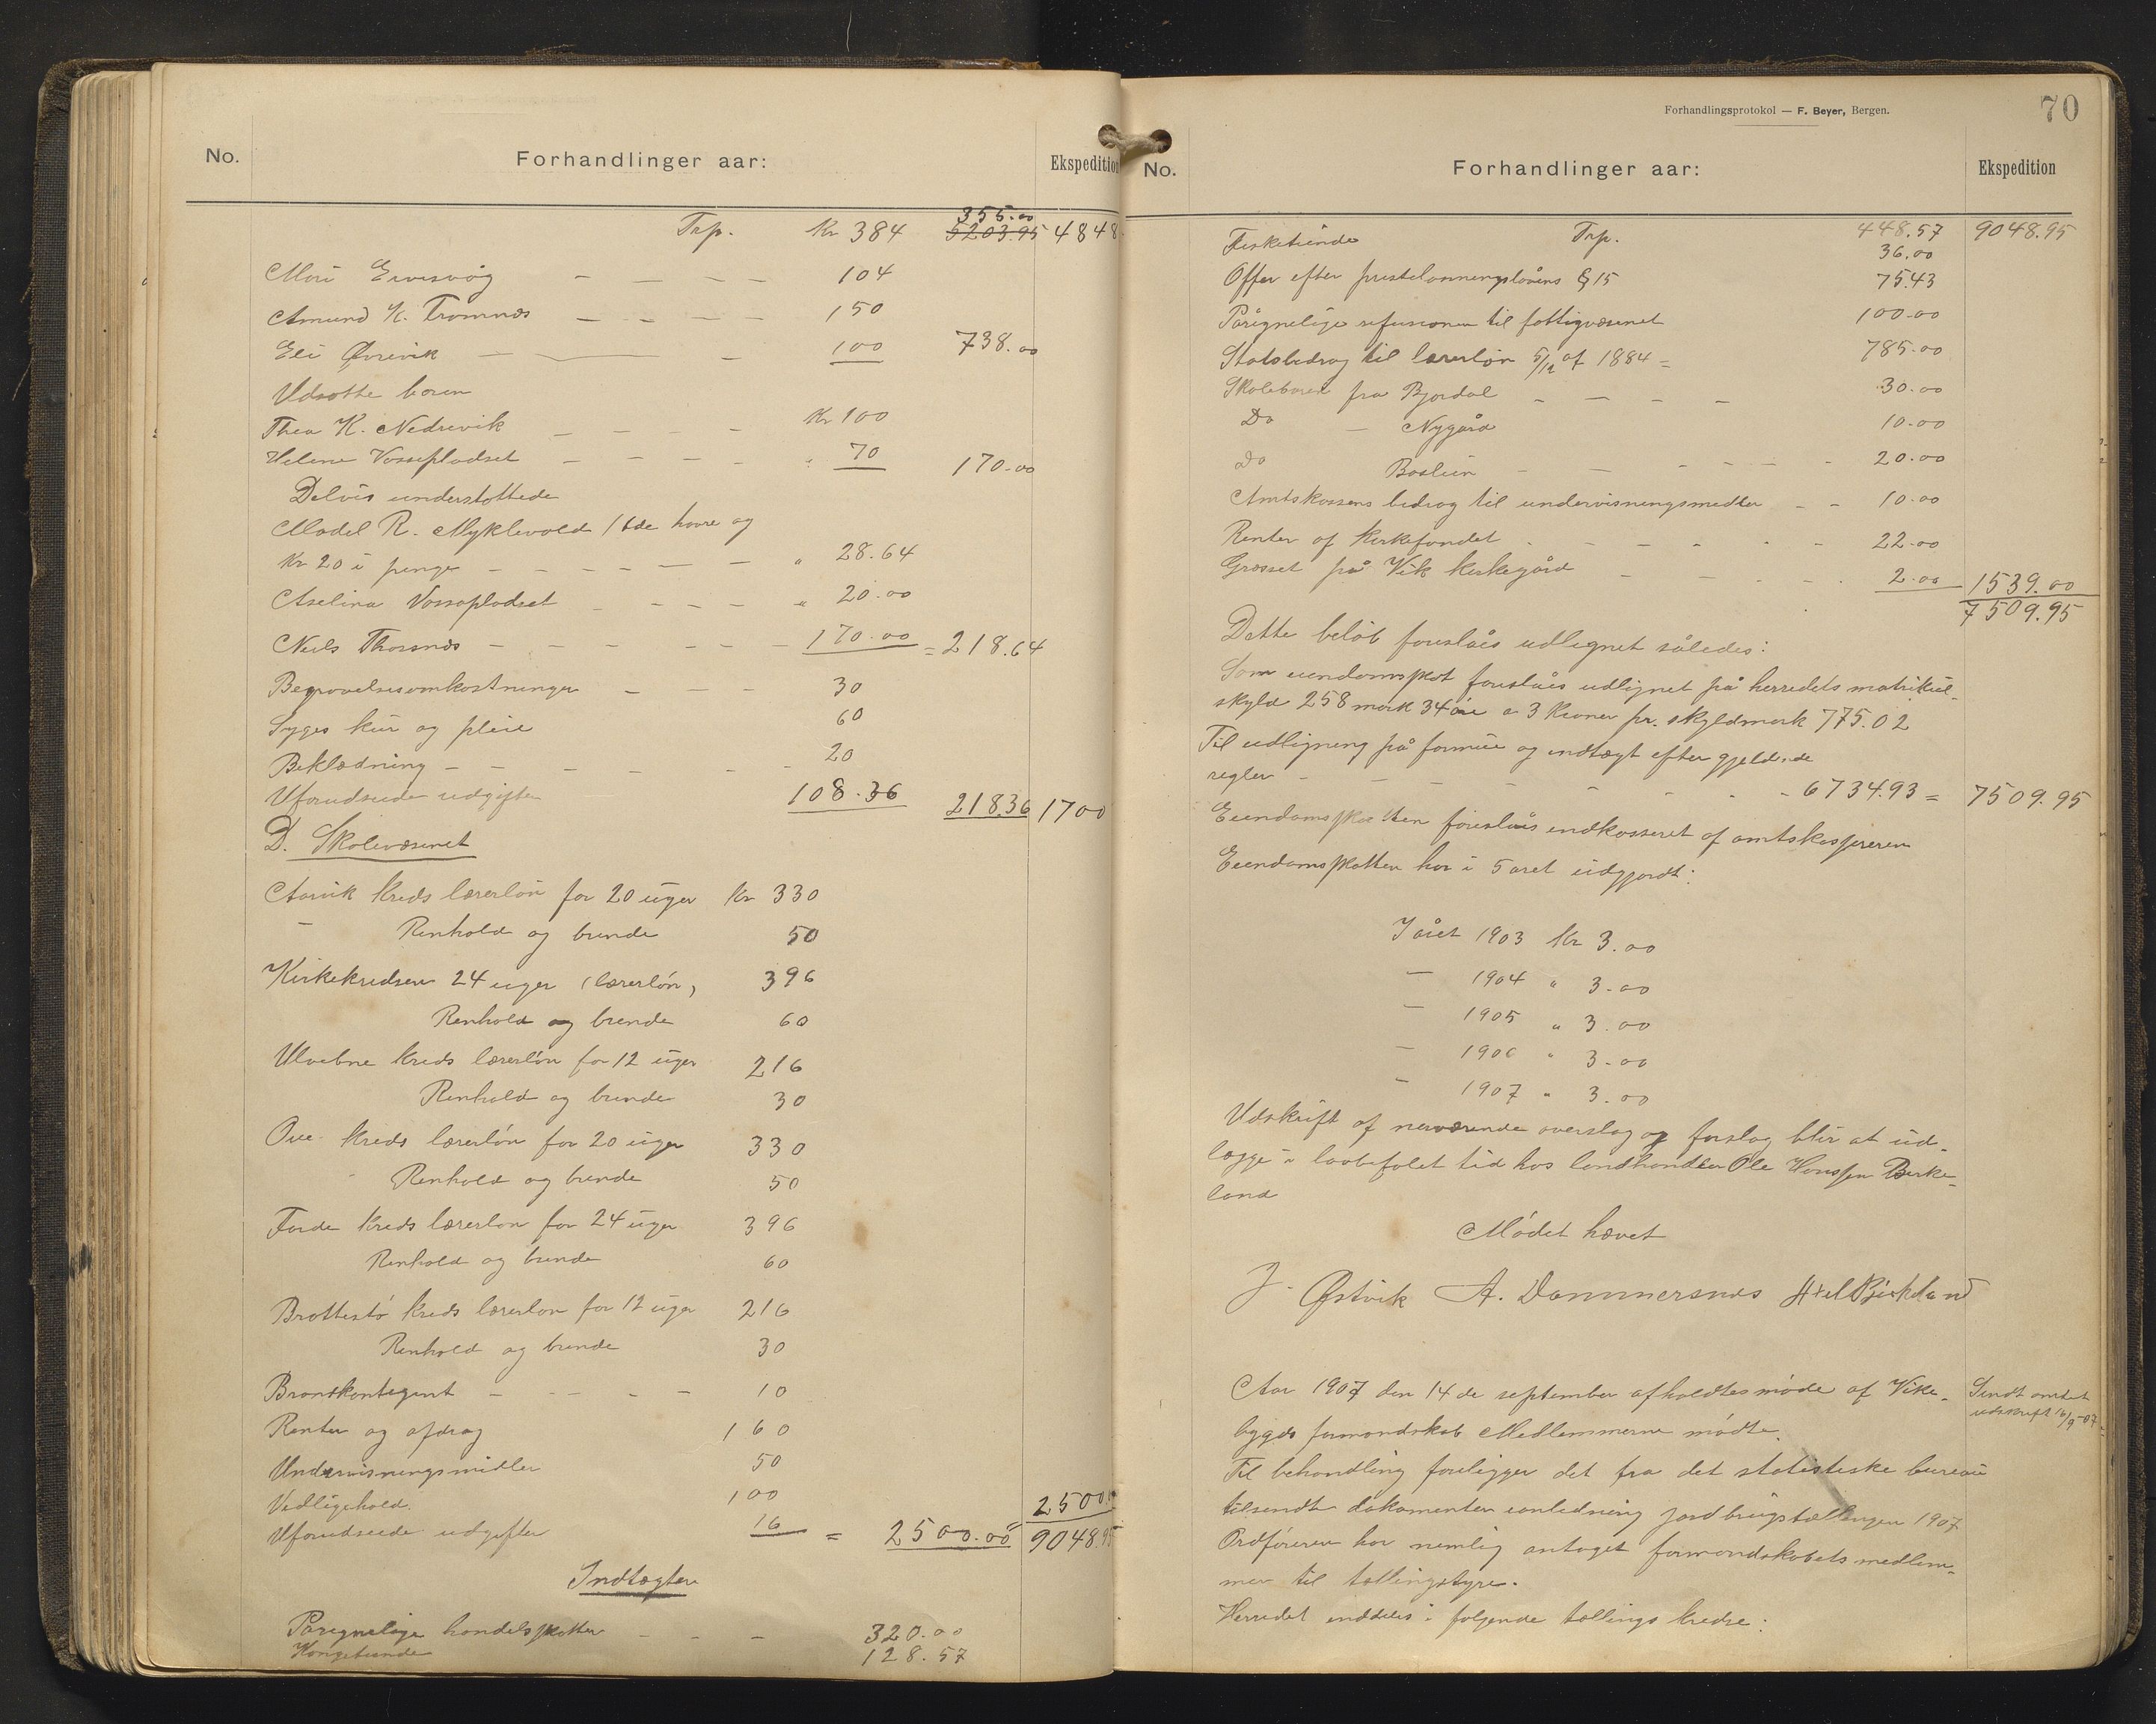 No. Forhandlinger aar: Ekspedition
355.00
Trp. Kr 384 5203.95 4848
Mari Ervesvåg — — — — 104
Amund K. Tromnæs — — — — 150
Eli Øvrevik — — — 100 738.00
Udsatte børn
Thea K. Nedrevik — — — — Kr 100
Helene Vosseplodset — — — — " 70 170.00
Delvis understøttede
Madel R. Myklevold
Kr 20 i penge — — — — — — — " 28.64
Aselina Vossaplodset — — — — " 20.00
Nels Thorsnæs — — — — — — — 170.00 = 218.64
Begravelsesomkostninger — — — 30
Syges kur og pleie 60
Beklædning — — — — — 20
Uforudseede udgifter 108.36 218.36 1700
D. Skolevæsenet
Aarvik kreds lærerløn for 20 uger Kr 330
— Renhold og brende 50
Kirkekredsen 24 uger (lærerløn) 396
Renhold og brende 60
Ulvebne kreds lærerløn for 12 uger 216
Renhold og brende 30
Ove kreds lærerløn for 20 uger 330
Renhold og brende 50
Førde kreds lærerløn for 24 uger 396
Renhold og brende 60
Brattestø kreds lærerløn for 12 uger 216
Renhold og brende 30
Brandkontegent — — — — — 10
Renter og afdrag 160
Undervisningsmidler 50
Vedligehold. 100 2500.
Uforudseede udgifter 16 = 2500.00 9048.95
Indtægter
Påregnelige handelsskatter — — — 320.00
Kongetiende 128.57
Forhandlingsprotokol — F. Beyer, Bergen.
70
No. Forhandlinger aar: Ekspedition
Trp. 448.57 9048.95
Fisketiende 36.00
Offer efter prestelønningslovens § 15 75.43
Påregnelige refusioner til fattigvæsenet 100.00
Statsbidrag til lærerløn 5/12 af 1884 = 785.00
Skolebaren fra Bjordal — — — — 30.00
Do — Nygård 10.00
Do Baslien — — — — — 20.00
Amtskassens bidrag til undervisningsmedler — — 10.00
Renter af kirkefondet — — — — — — 22.00
Græsset på Vik kirkegård — — — — 2.00 1539.00
7509.95
Dette beløb foreslåes udlignet således:
Som eiendomsskat foreslåes udlignet på herredets matrikul-
skyld 258 mark 34 øre a 3 kroner pr. skyldmark 775.02
Til udligning på formue og indtægt efter gjeldende
regler — — — — — — — 6734.93 = 7509.95
Eiendomsskatten foreslåes indkasseret af amtskassereren
Eiendomsskatten har i 5 året udgjordt:
I året 1903 Kr 3.00
— 1904 " 3.00
— 1905 " 3.00
— 1906 " 3.00
— 1907 " 3.00
Udskrift af nerværende overslag og forslag blir at ud-
lægge i lovbefalet tid hos landhandler Ole Hanssen Berke-
land
Mødet hævet
J. Østvik A. Dommersnes Birkeland
Aar 1907 den 14de september afholdtes møde af Vike-
bygds formandskab Medlemmerne mødte.
Sendt amtet
udskrift 16/9-07.
Til behandling foreligger det fra det statistiske bureau
tilsendte dokumenter ianledning jordbrugstællingen 1907
Ordføreren har nemlig antaget formandskabets medlem-
mer til tællingstyre.
Herredet inddeles i følgende tællings kredse: